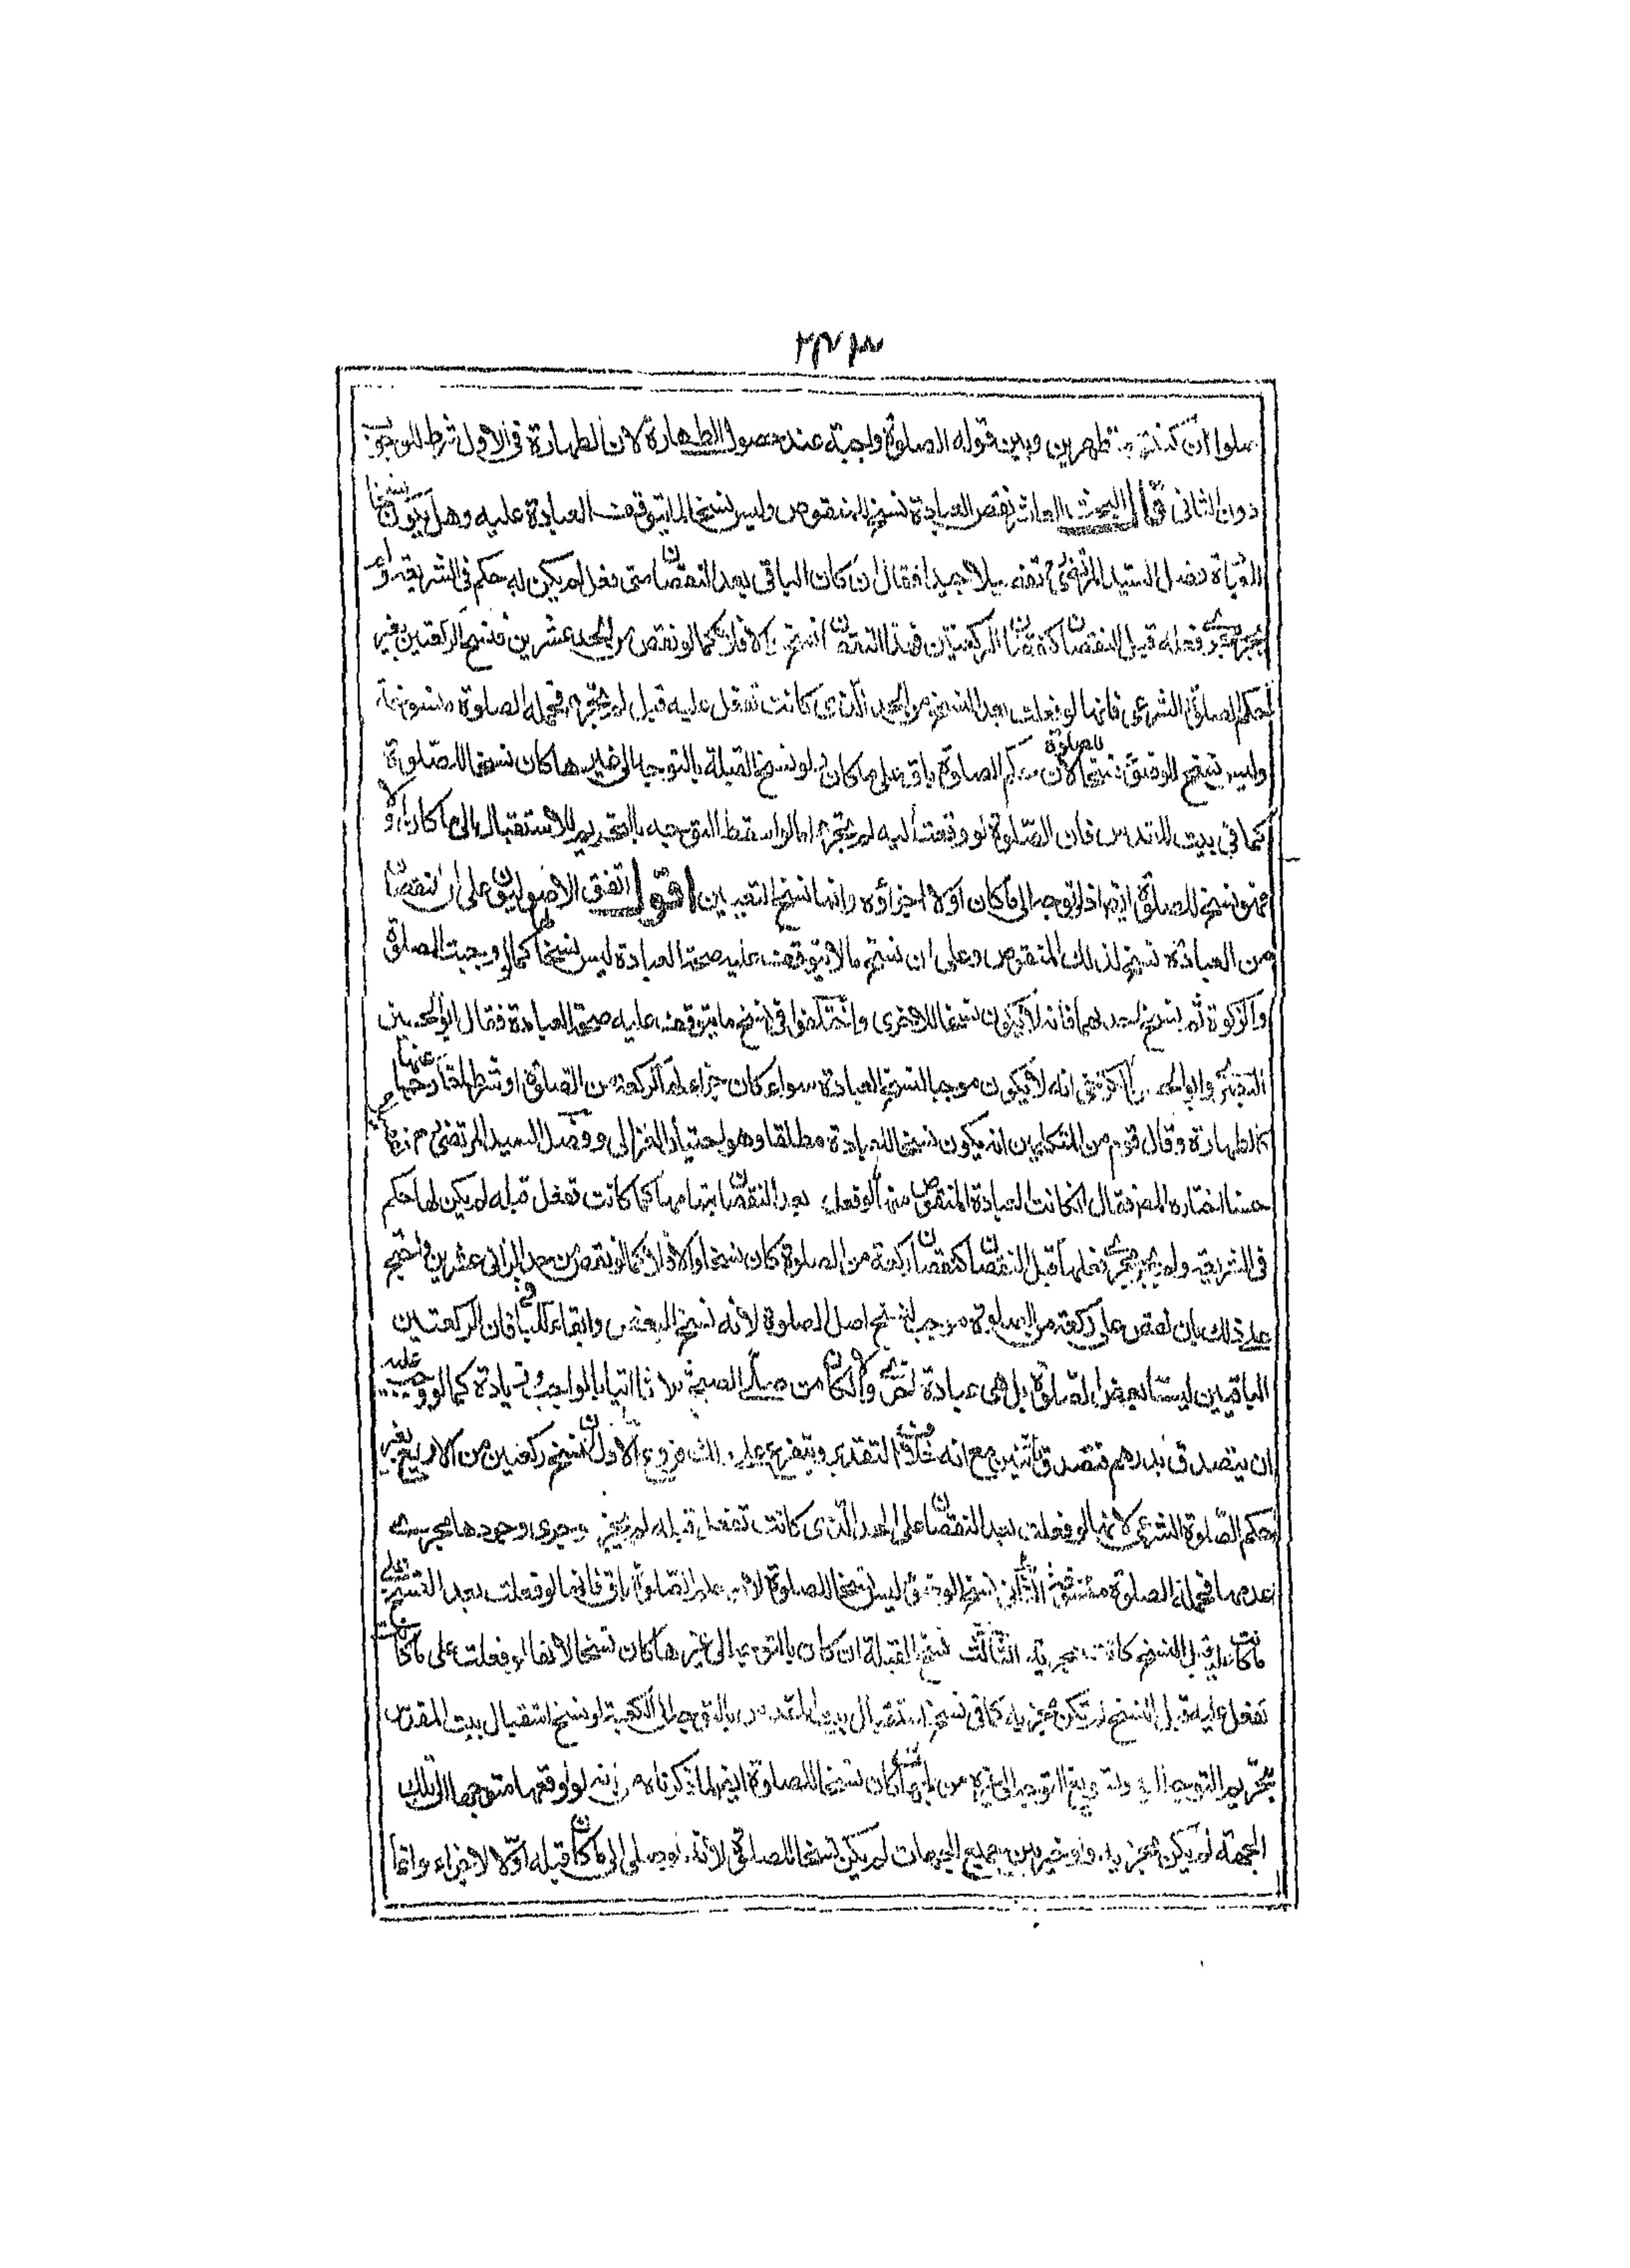 صلوا ان كنتم متطهرين وبين قوله الصلوة واجبة عند حصول الطهارة لان الطهارة فى الاول شرط للوجوب
دون الثانى قال البحث العاشر نقص العبادة نسخ للمنقوص وليس نسخا لما يتوقف العبادة عليه وهل يكون نسخا
للعبادة فصل السيد المرتضى تفصيلا جيدا فقال ان كان الباقى بعد النقصان متى فعل لم يكن له حكم فى الشريعة و
يجر مجرى فعله قبل النقصان كنقصان الركعتين فهذا النقصان نسخ والا فلا كما لو نقص من الحد عشرين فنسخ الركعتين يغير
لحكم الصلوة الشرعى فانها لو فعلت بعد النسخ من الحد الذى كانت تفعل عليه قبل لم يجز فجملة الصلوة منسوخة
وليس نسخ الوضوء نسخا للصلوة لان حكم الصلوة باق على ما كان ولو نسخ القبلة بالتوجه الى غيرها كان نسخا للصلوة
كما فى بيت المقدس فان الصلوة لو وقعت اليه لم يجز اما لو اسقط التوجه بالتحريم للاستقبال الى ما كان اولا
فهو نسخ للصلوة ايضا اذ لو توجه الى ما كان اولا اجزأه وانما نسخ التعيين اقول اتفق الاصوليون على ان النقصان
من العبادة نسخ لذلك المنقوص وعلى ان نسخ ما لا يتوقف عليه صحة العبادة ليس نسخا لها كما لو وجبت الصلوة
والزكوة ثم نسخ احدهما فانه لا يكون نسخا للاخرى واختلفوا فى نسخ ما يتوقف عليه صحة العبادة فقال ابو الحسين
البصرى وابو الحسن الكرخى انه لا يكون موجبا لنسخ العبادة سواء كان جزاء لها كركعة من الصلوة او شرطا خارجا عنها
كالطهارة وقال قوم من المتكلمين انه يكون نسخا للعبادة مطلقا وهو اختيار الغزالى وفصل السيد المرتضى
حسنا اختاره المص فقال ان كانت العبادة المنقوص منها لو فعلت بعد النقصان بتمامها كما كانت تفعل قبله لم يكن لها حكم
فى الشريعة ولم يجر مجرى فعلها قبل النقصان كنقصان ركعة من الصلوة كان نسخا والا فلا كما لو نقص من حد الزانى عشرين واحتج
على ذلك بان نقص على ركعة من الصلوة موجب لنسخ اصل الصلوة لانه نسخ البعض وابقاء للباقى فان الركعتين
الباقيتين ليستا بعض الصلوة بل هى عبادة اخرى والا لكان من صلى الصبح ثلاثا اتيا بالواجب وزيادة كما لو وجب عليه
ان يتصدق بدرهم فتصدق باثنين مع انه خلاف التقدير ويتفرع على ذلك فروع الاول نسخ ركعتين من الاربع يغير
حكم الصلوة الشرعى لانها لو فعلت بعد النقصان على الحد الذى كانت تفعل قبله لم يجز وجرى وجودها مجرى
عدمها فجملة الصلوة منسوخة الثانى نسخ الوضوء ليس نسخا للصلوة لان حكم الصلوة باق فانها لو فعلت بعد النسخ على
ما كانت عليه قبل النسخ كانت مجزية الثالث نسخ القبلة ان كان بالتوجه الى غيرها كان نسخا لانها لو فعلت على ما كانت
تفعل عليه قبل النسخ لم تكن مجزية كما فى نسخ استقبال بيت المقدس بالتوجه الى الكعبة لو نسخ استقبال بيت المقدس
بتحريم التوجه اليه وتسويغ التوجه الى غيره من الجهات كان نسخا للصلوة ايضا لما ذكرناه من انه لو اوقعها متوجها الى تلك
الجهة لم يكن مجزية ولو خير بين جميع الجهات لم يكن نسخا للصلوة لانه لو صلى الى ما كان قبله اولا لاجزاء وانما